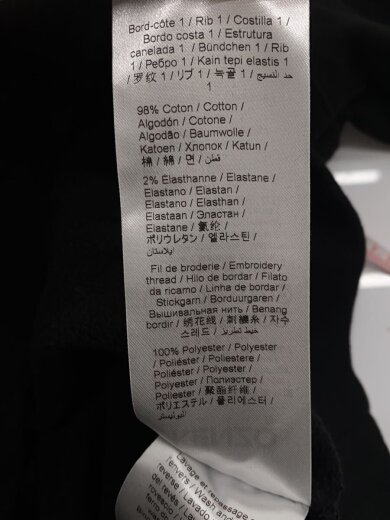 Bord-côte 1 / Rib 1 / Costilla 1 /
Bordo costa 1 / Estrutura
canelada 1 / Bündchen 1 / Rib
1 / Ребро 1 / Kain tepi elastis 1
/ 罗纹 1 / リブ 1 / 늑골 1 / حد النسيج
1
98% Coton / Cotton /
Algodón / Cotone /
Algodão / Baumwolle /
Katoen / Хлопок / Katun /
棉 / 綿 / 면 / قطن
2% Élasthanne / Elastane /
Elastano / Elastan /
Elastano / Elasthan /
Elastaan / Эластан /
Elastane / 氨纶 /
ポリウレタン / 엘라스틴 /
ايلاستان
Fil de broderie / Embroidery
thread / Hilo de bordar / Filato
da ricamo / Linha de bordar /
Stickgarn / Borduurgaren /
Вышивальная нить / Benang
bordir / 绣花线 / 刺繍糸 / 자수
스레드 / خيط تطريز
100% Polyester / Polyester
/ Poliéster / Poliestere /
Poliéster / Polyester /
Polyester / Полиэстер /
Polyester / 聚酯纤维 /
ポリエステル / 폴리에스터 /
البوليستر
Lavage et repassage
l'envers / Wash and
reverse / Lavado
del revés / Lava
rovescio / Lava
avesso /